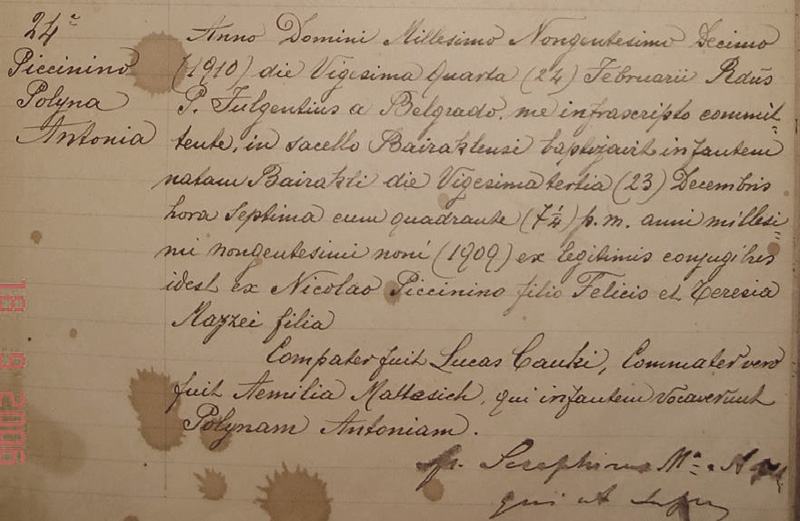 24ª
Piccinino
Polyna
Antonia
Anno Domini Millesimo Nongentesimo Decimo
(1910) die Vigesima Quarta (24) Februarii Rdūs
P. Fulgentius a Belgrado, me infrascripto commit=
tente, in sacello Bairaklensi baptizavit infantem
natam Bairakli die Vigesimatertia (23) Decembris
hora septima cum quadrante (7¼) p.m. anni millesi=
mi nongentesimi noni (1909) ex legitimis conjugibus
idest ex Nicolao Piccinino filio Felicis et Teresia
Mazzei filia
Compater fuit Lucas Cauki, Commater vero
fuit Aemilia Mattasich, qui infantem vocaverunt
Polynam Antoniam.
fr. Seraphinus Mª
qui et supra